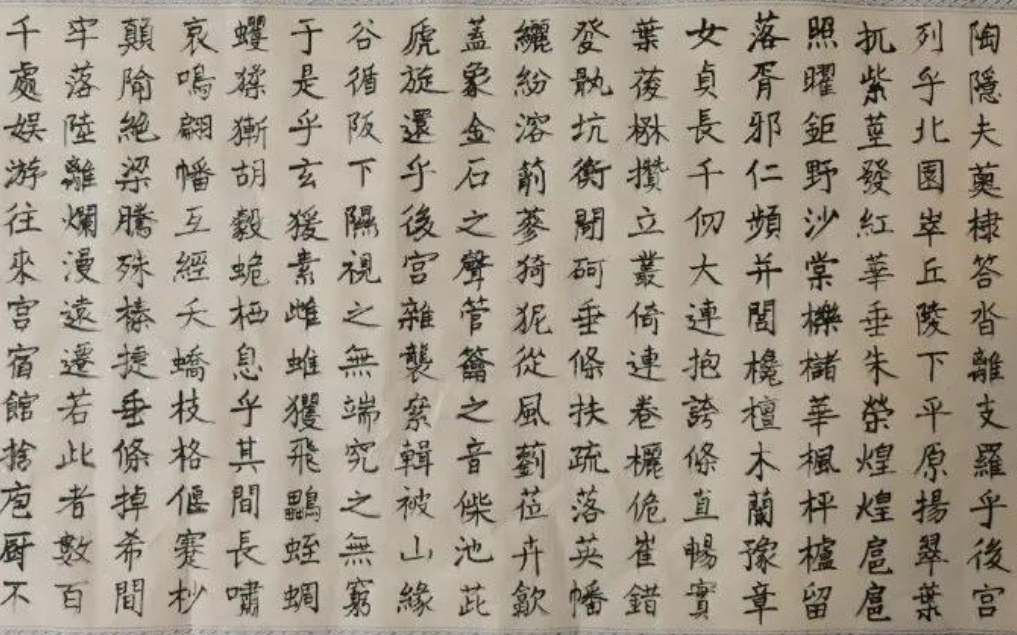 陶隱夫薁棣答沓離支羅乎後宮
列乎北園崒丘陵下平原揚翠葉
扤紫莖發紅華垂朱榮煌煌扈扈
照曜鉅野沙棠櫟櫧華楓枰櫨留
落胥邪仁頻并閭欃檀木蘭豫章
女貞長千仞大連抱誇條直暢實
葉葰楙攢立叢倚連卷欐佹崔錯
癹骫坑衡閜砢垂條扶疏落英幡
纚紛溶箾蔘猗狔從風藰莅卉歙
蓋象金石之聲管籥之音偨池茈
虒旋還乎後宮雜襲絫輯被山緣
谷循阪下隰視之無端究之無窮
于是乎玄猨素雌蜼玃飛鸓蛭蜩
蠼猱獑胡豰蛫栖息乎其間長嘯
哀鳴翩幡互經夭蟜枝格偃蹇杪
顛隃絕梁騰殊榛捷垂條掉希間
牢落陸離爛漫遠遷若此者數百
千處娛游往來宮宿館捨庖厨不